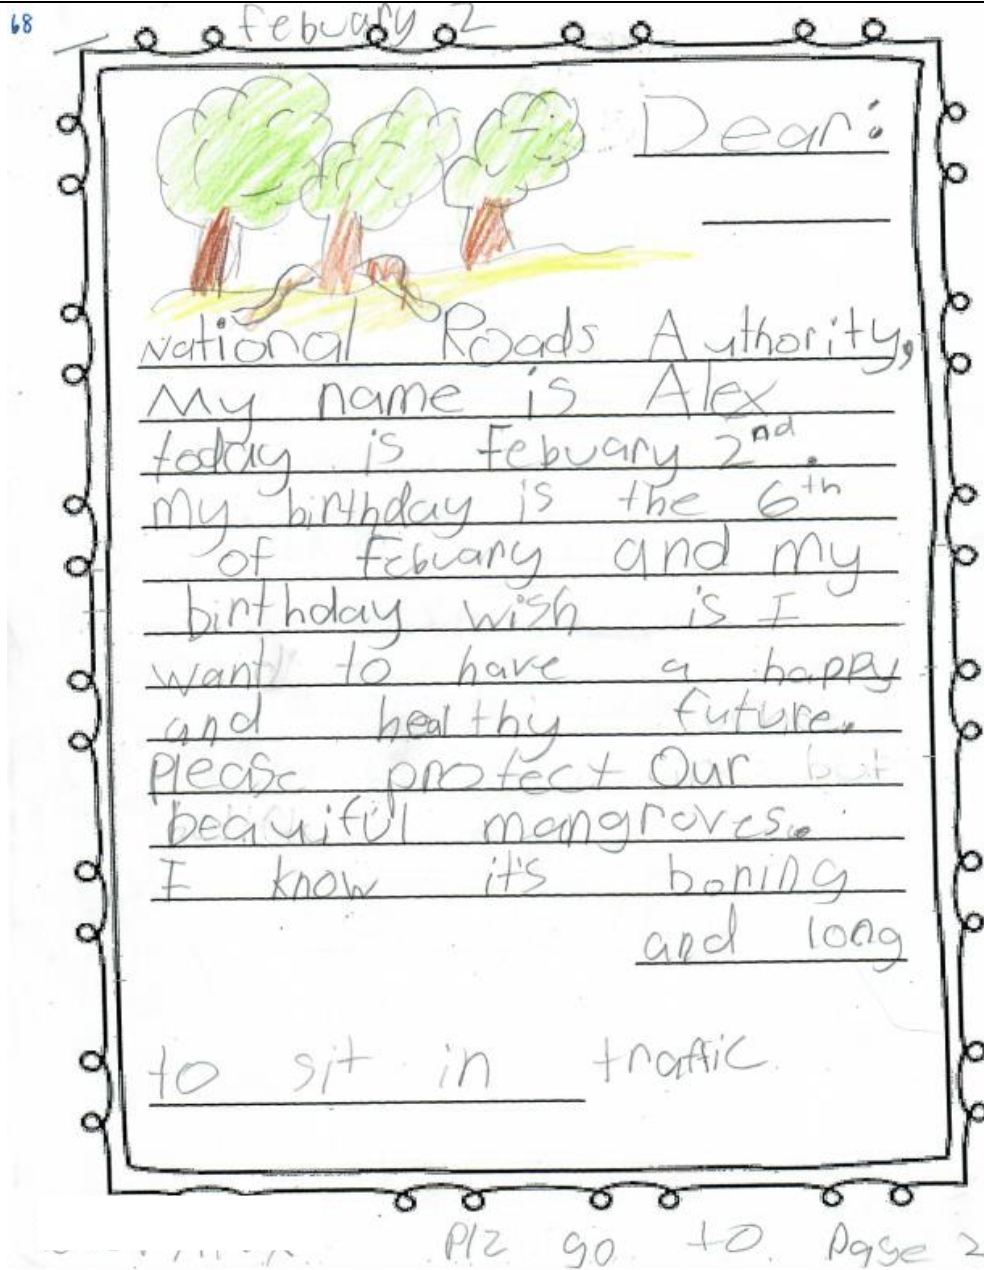 68
febuary 2
Dear:
National Roads Authority,
My name is Alex
today is Febuary 2nd.
my birthday is the 6th
of Febuary and my
birthday wish is I
want to have a happy
and healthy future.
Please protect Our but
beauiful mangroves.
I know it's boring
and long
to sit in traffic
Plz go to Page 2